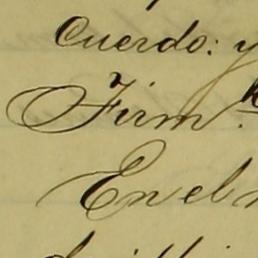 Cuerdo: y
Firm.
En el